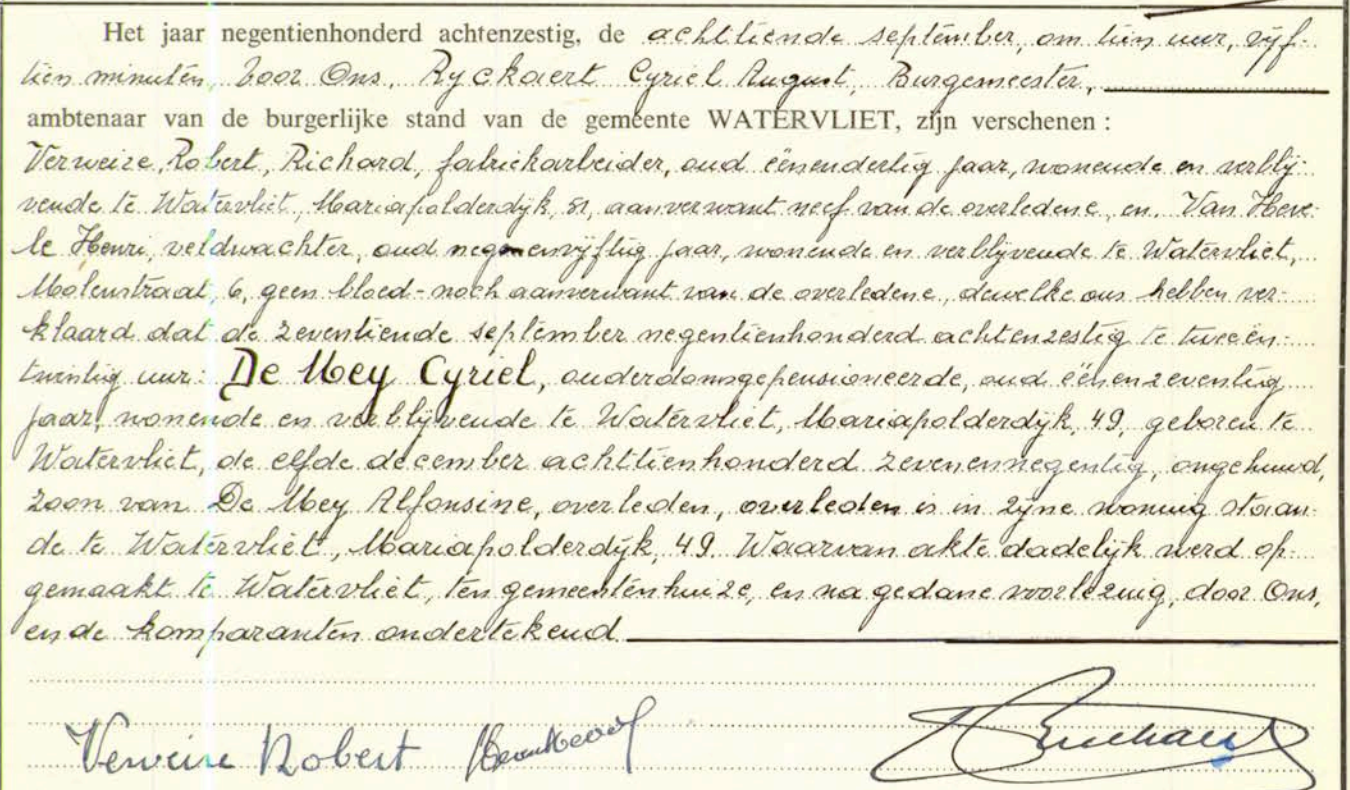 Het jaar negentienhonderd achtenzestig, de achttiende september, om tien uur, vijf-
tien minuten, voor Ons, Ryckaert Cyriel August, Burgemeester,
ambtenaar van de burgerlijke stand van de gemeente WATERVLIET, zijn verschenen :
Verweire, Robert, Richard, fabriekarbeider, oud eënendertig jaar, wonende en verblij-
vende te Watervliet, Mariapolderdijk, 81, aanverwant neef van de overledene, en. Van Heve-
le Henri, veldwachter, oud negenenvijftig jaar, wonende en verblijvende te Watervliet,
Molenstraat, 6, geen bloed- noch aanverwant van de overledene, dewelke ons hebben ver-
klaard dat de zeventiende september negentienhonderd achtenzestig te tweeën-
twintig uur: De Mey Cyriel, ouderdomsgepensioneerde, oud eënenzeventig
jaar, wonende en verblijvende te Watervliet, Mariapolderdijk, 49, geboren te
Watervliet, de elfde december achttienhonderd zevenennegentig, ongehuwd,
zoon van De Mey Alfonsine, overleden, overleden is in zijne woning staan-
de te Watervliet, Mariapolderdijk, 49. Waarvan akte dadelijk werd op-
gemaakt te Watervliet, ten gemeentenhuize, en na gedane voorlezing, door Ons,
en de komparanten ondertekend
Verweire Robert